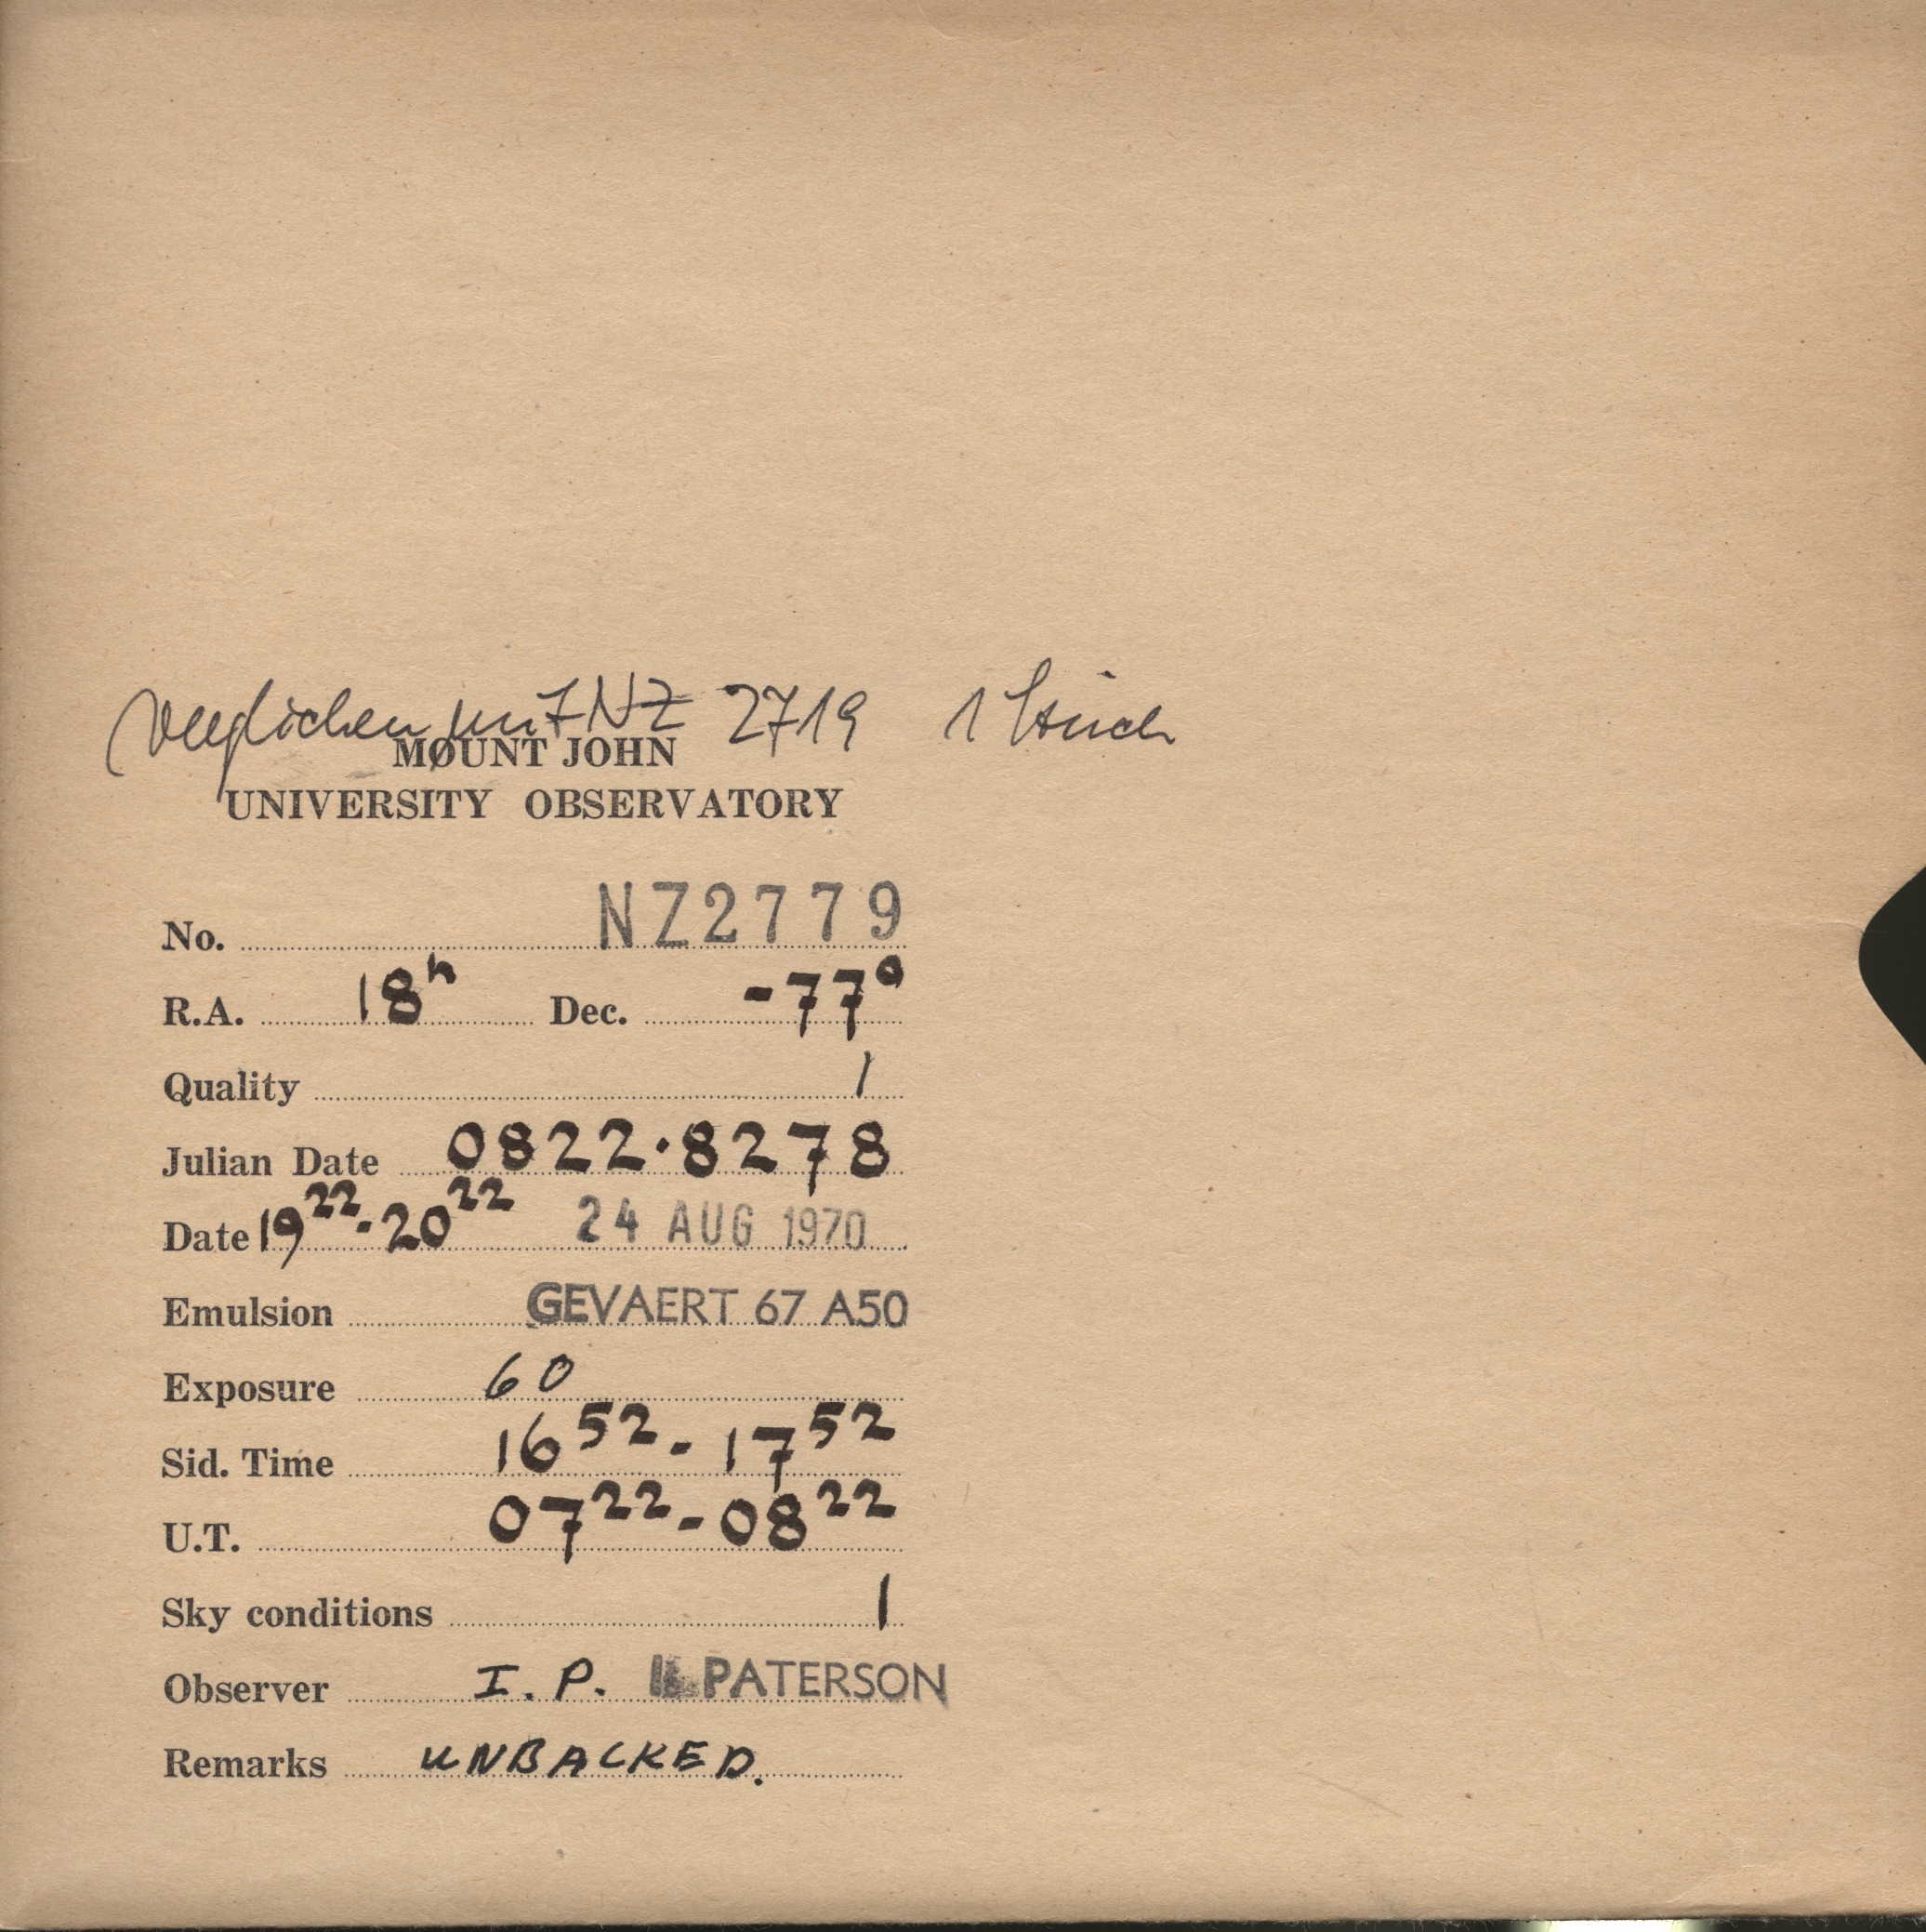 Verglichen mit NZ 2719 1 Strich
MOUNT JOHN
UNIVERSITY OBSERVATORY
No. NZ2779
R.A. 18h Dec. -77°
Quality 1
Julian Date 0822.8278
Date 19 22 - 20 22 24 AUG 1970
Emulsion GEVAERT 67 A50
Exposure 60
Sid. Time 16 52 - 17 52
U.T. 07 22 - 08 22
Sky conditions 1
Observer I.P. PATERSON
Remarks UNBACKED.